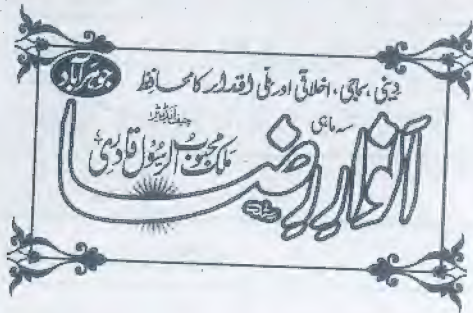 جوہر آباد
دینی، سماجی، اخلاقی اور ملی اقدار کا محافظ
سہ ماہی
انوارِ رضا
چیف ایڈیٹر
ملک محبوب الرسول قادری